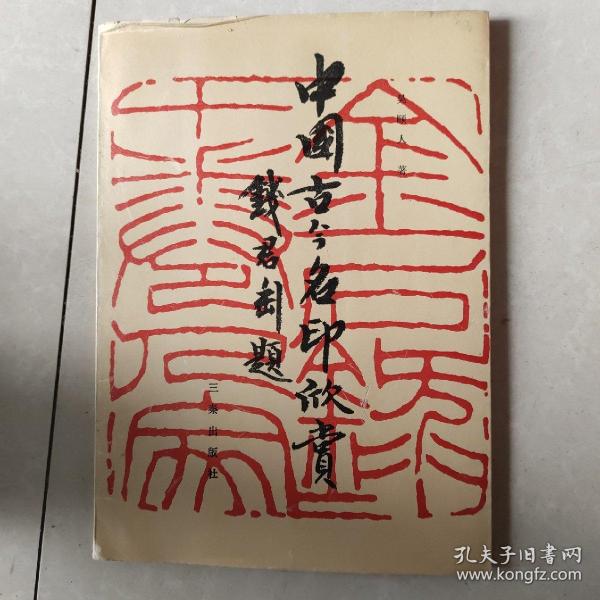 吴颐人 著
中国古今名印欣赏
钱君匋题
三秦出版社
孔夫子旧书网
www.kongfz.com